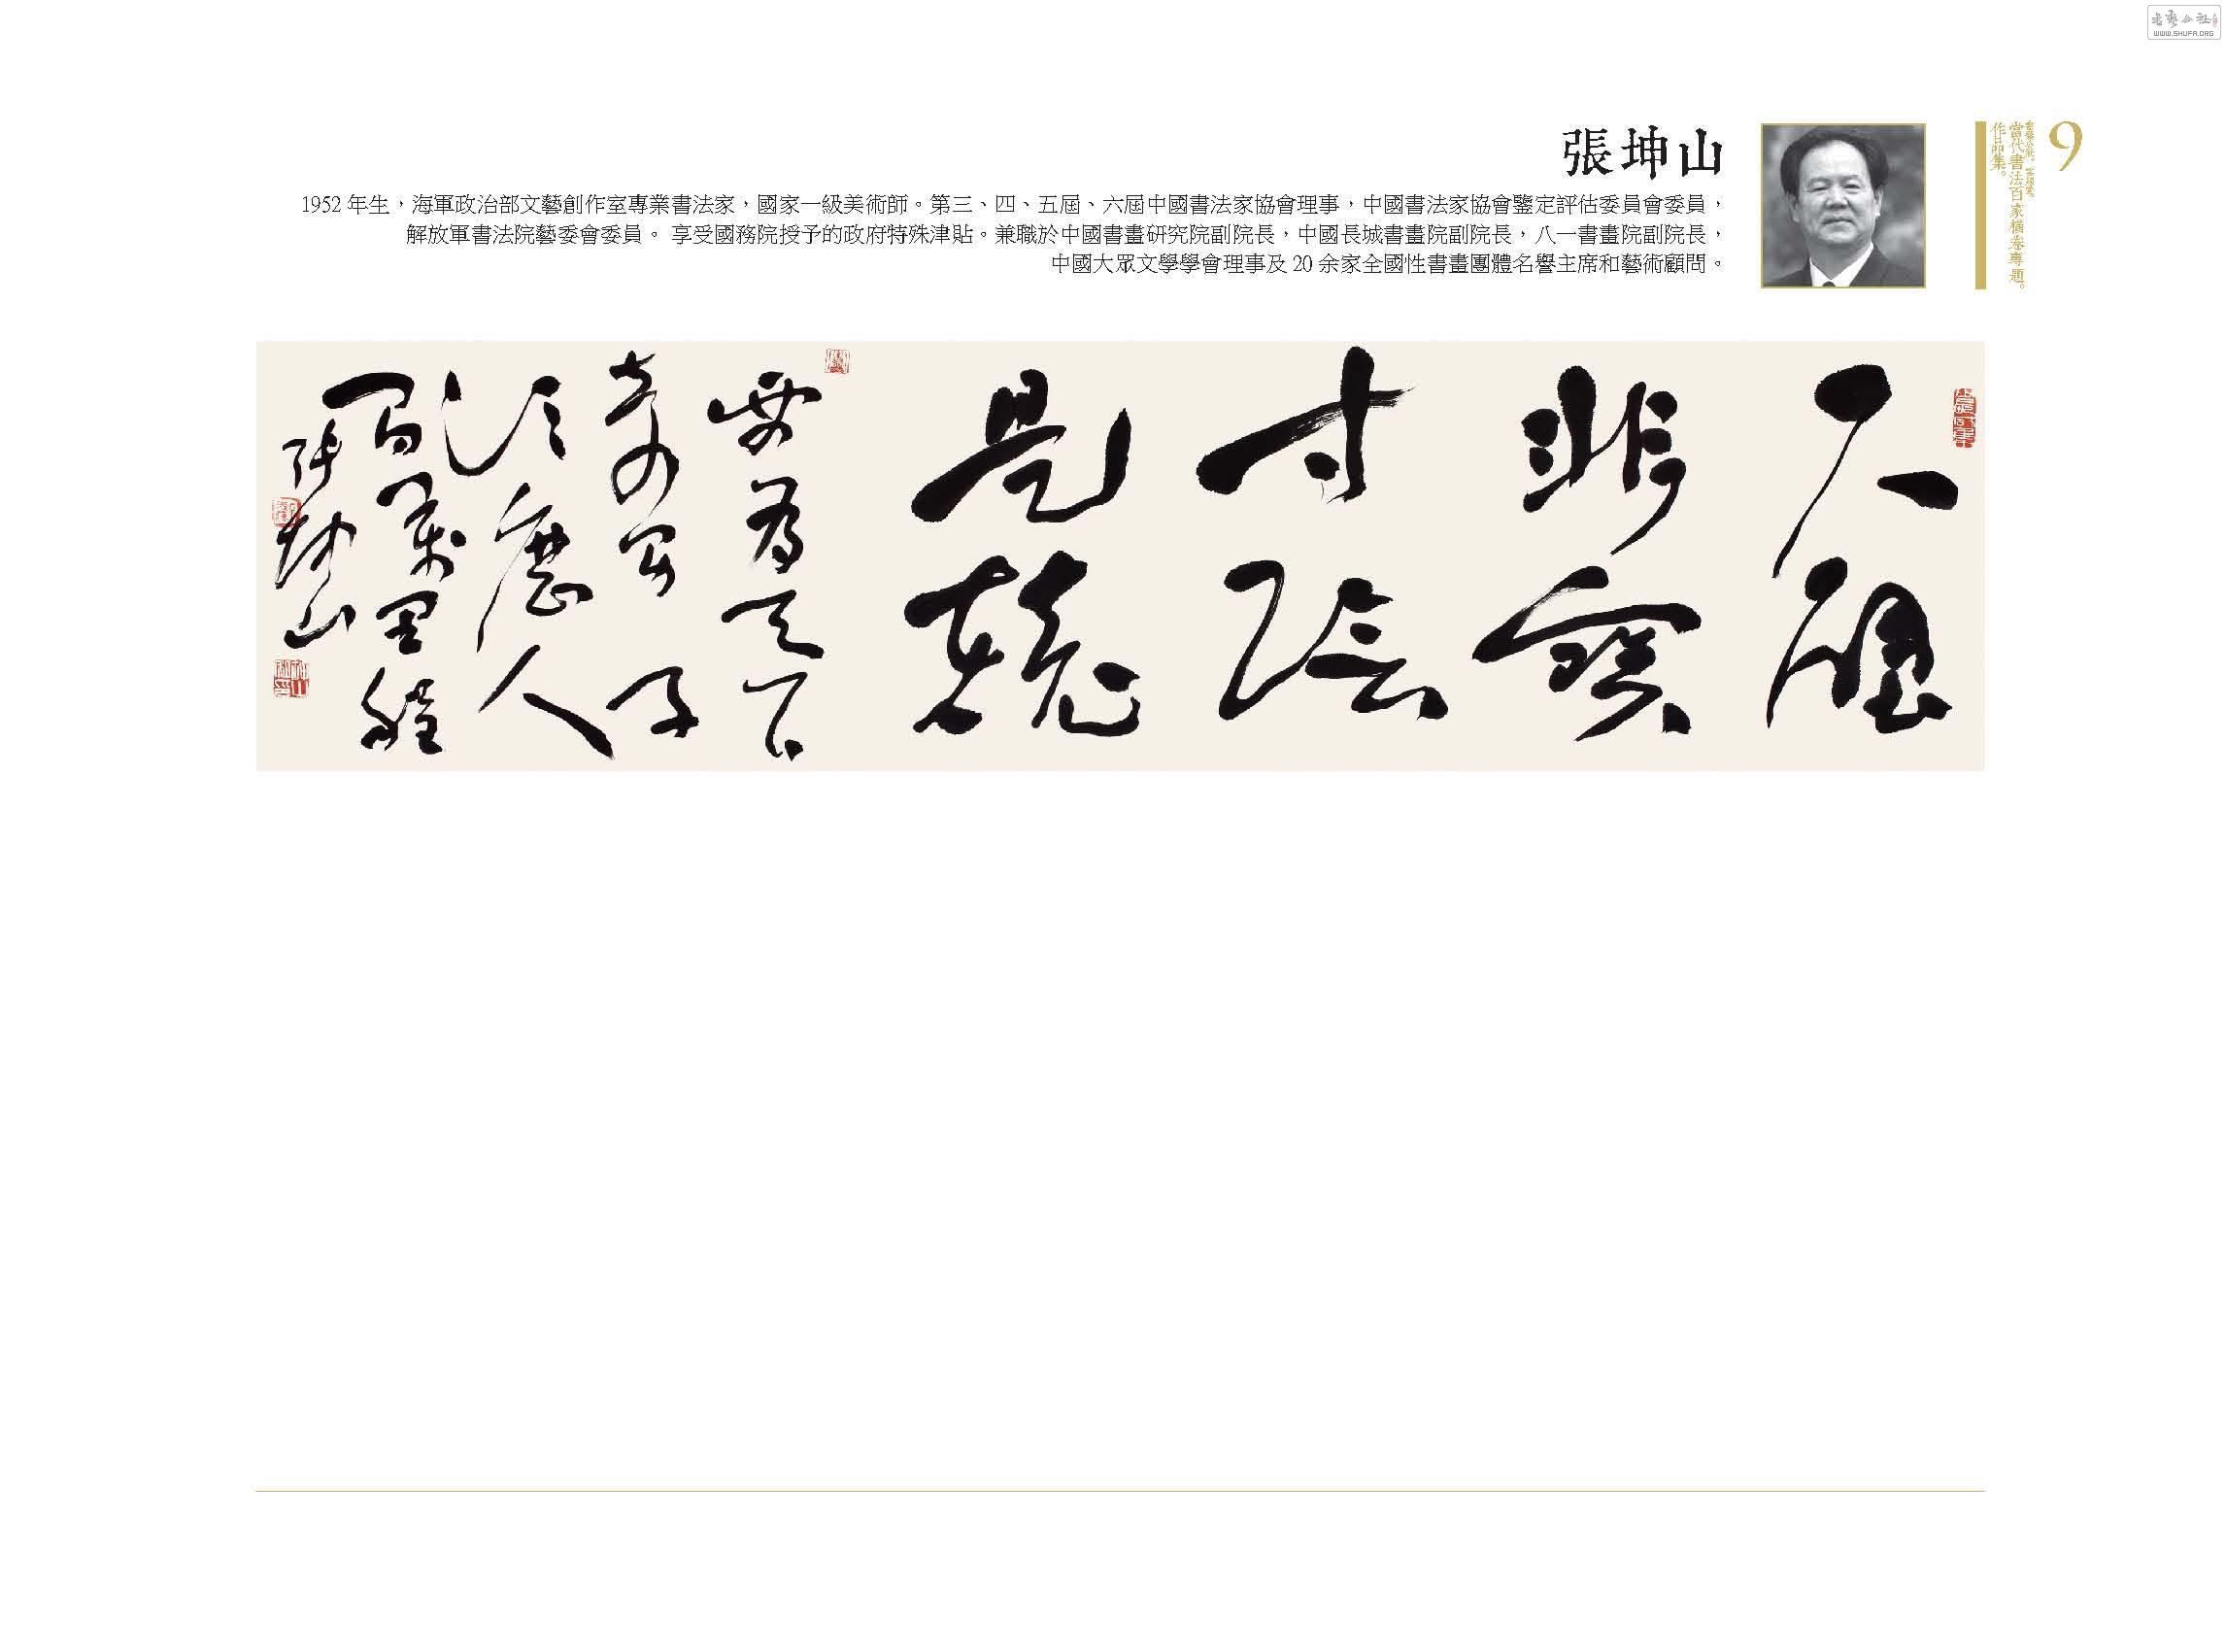 張坤山
1952 年生，海軍政治部文藝創作室專業書法家，國家一級美術師。第三、四、五屆、六屆中國書法家協會理事，中國書法家協會鑒定評估委員會委員，
解放軍書法院藝委會委員。 享受國務院授予的政府特殊津貼。兼職於中國書畫研究院副院長，中國長城書畫院副院長，八一書畫院副院長，
中國大眾文學學會理事及 20 余家全國性書畫團體名譽主席和藝術顧問。
9
當代書法百家橫卷專題。
作品集。
尺璧
非寶
寸陰
是競
要為天下
奇男子
須歷人
間萬里程
張坤山
WWW.SHUFA.ORG